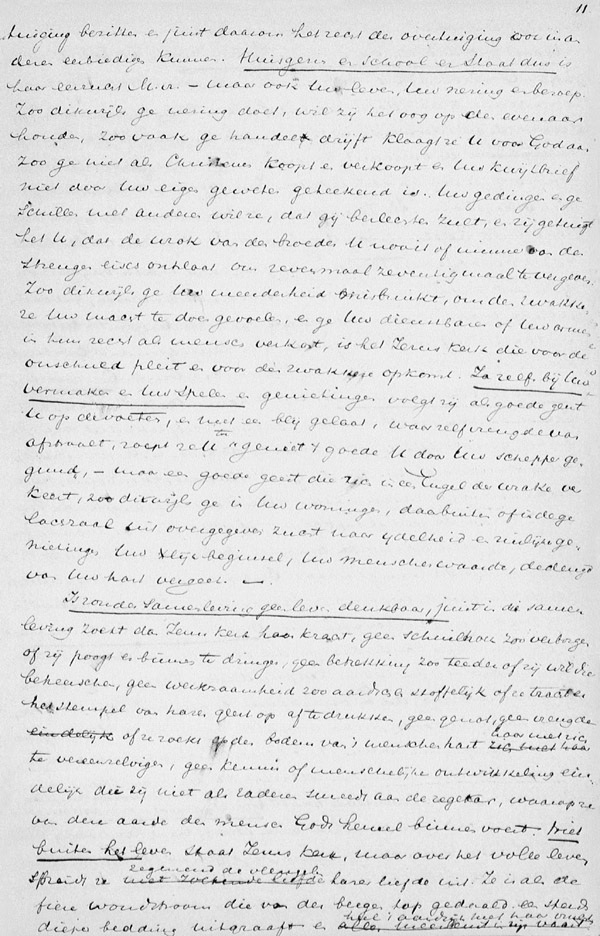 11
tuiging bezitten en juist daarom het recht der overtuiging ook in an
deren eerbiedigen kunnen. Huisgezin en school en Staat dus is
haar eerunst Mm. — maar ook Uw leven, Uw nering en beroep.
Zoo dikwijls ge nering doet, wil zij het oog op den evenaar
houden, zoo vaak ge handel drijft klaagt ze U voor God aan
Zoo ge niet als Christenen koopt en verkoopt en Uw kwijtbrief
niet door Uw eigen geweten geteekend is. Uw gedingen en ge
schillen met anderen wil ze, dat gij beslechten zult, en zij getuigt
het U, dat de wrok van den broeder U nooit of nimmer van den
strengen eisch ontslaat om zevenmaal zeventigmaal te vergeven.
Zoo dikwijls ge Uw meerderheid misbruikt, om den zwakke-
re Uw macht te doen gevoelen, en ge Uw dienstbaren of Uw armen
in hun recht als menschen verkort, is het Jezus Kerk die voor de
onschuld pleit en voor den zwakkere opkomt. Ja zelfs bij Uw
vermaken en Uw spelen en genietingen volgt zij als goede geest
U op de voeten, en met een blij gelaat, waar zelf vreugde van
afstraalt, roept ze U "geniet 't goede U door Uw schepper ge-
gund, — maar een goede geest die zich in een Engel der wrake ver
keert, zoo dikwijls ge in Uw woningen, daarbuiten of in de ge
laeszaal uit overgegeven zucht naar ijdelheid en zinlijk ge-
nieting Uw beginsel, Uw menschenwaarde, de deugd
van Uw hart vergeet. —
Is zonder samenleving geen leven denkbaar, juist in die samen
leving zoekt dan Jezus Kerk haar kracht, geen schuilhoek zoo verborgen
of zij poogt er binnen te dringen, geen betrekking zoo teeder of zij wil die
beheerschen, geen werkzaamheid zoo aardsch en stoffelijk of ze tracht er
het stempel van haren geest op af te drukken, geen genot, geen vreugde
haar met zich
eindelijk of ze zoekt op den bodem van 's menschen hart zich met haar
te vereenzelvigen, geen kennis of menschelijke ontwikkeling ein-
delijk die zij niet als raderen smeedt aan de zegekar, waarop ze
van den aarde den mensch Gods hemel binnen voert. Niet
buiten het leven staat Jezus Kerk, maar over het volle leven
zegenend de vleugelen
spreidt ze met zoekende liefde harer liefde uit. Ze is als de
fiere woudstroom die van der bergen top gedaald en steeds
heel 't aardrijk met haar vrucht
dieper bedding uitgraaft en alles meesleurt in zijn vaart